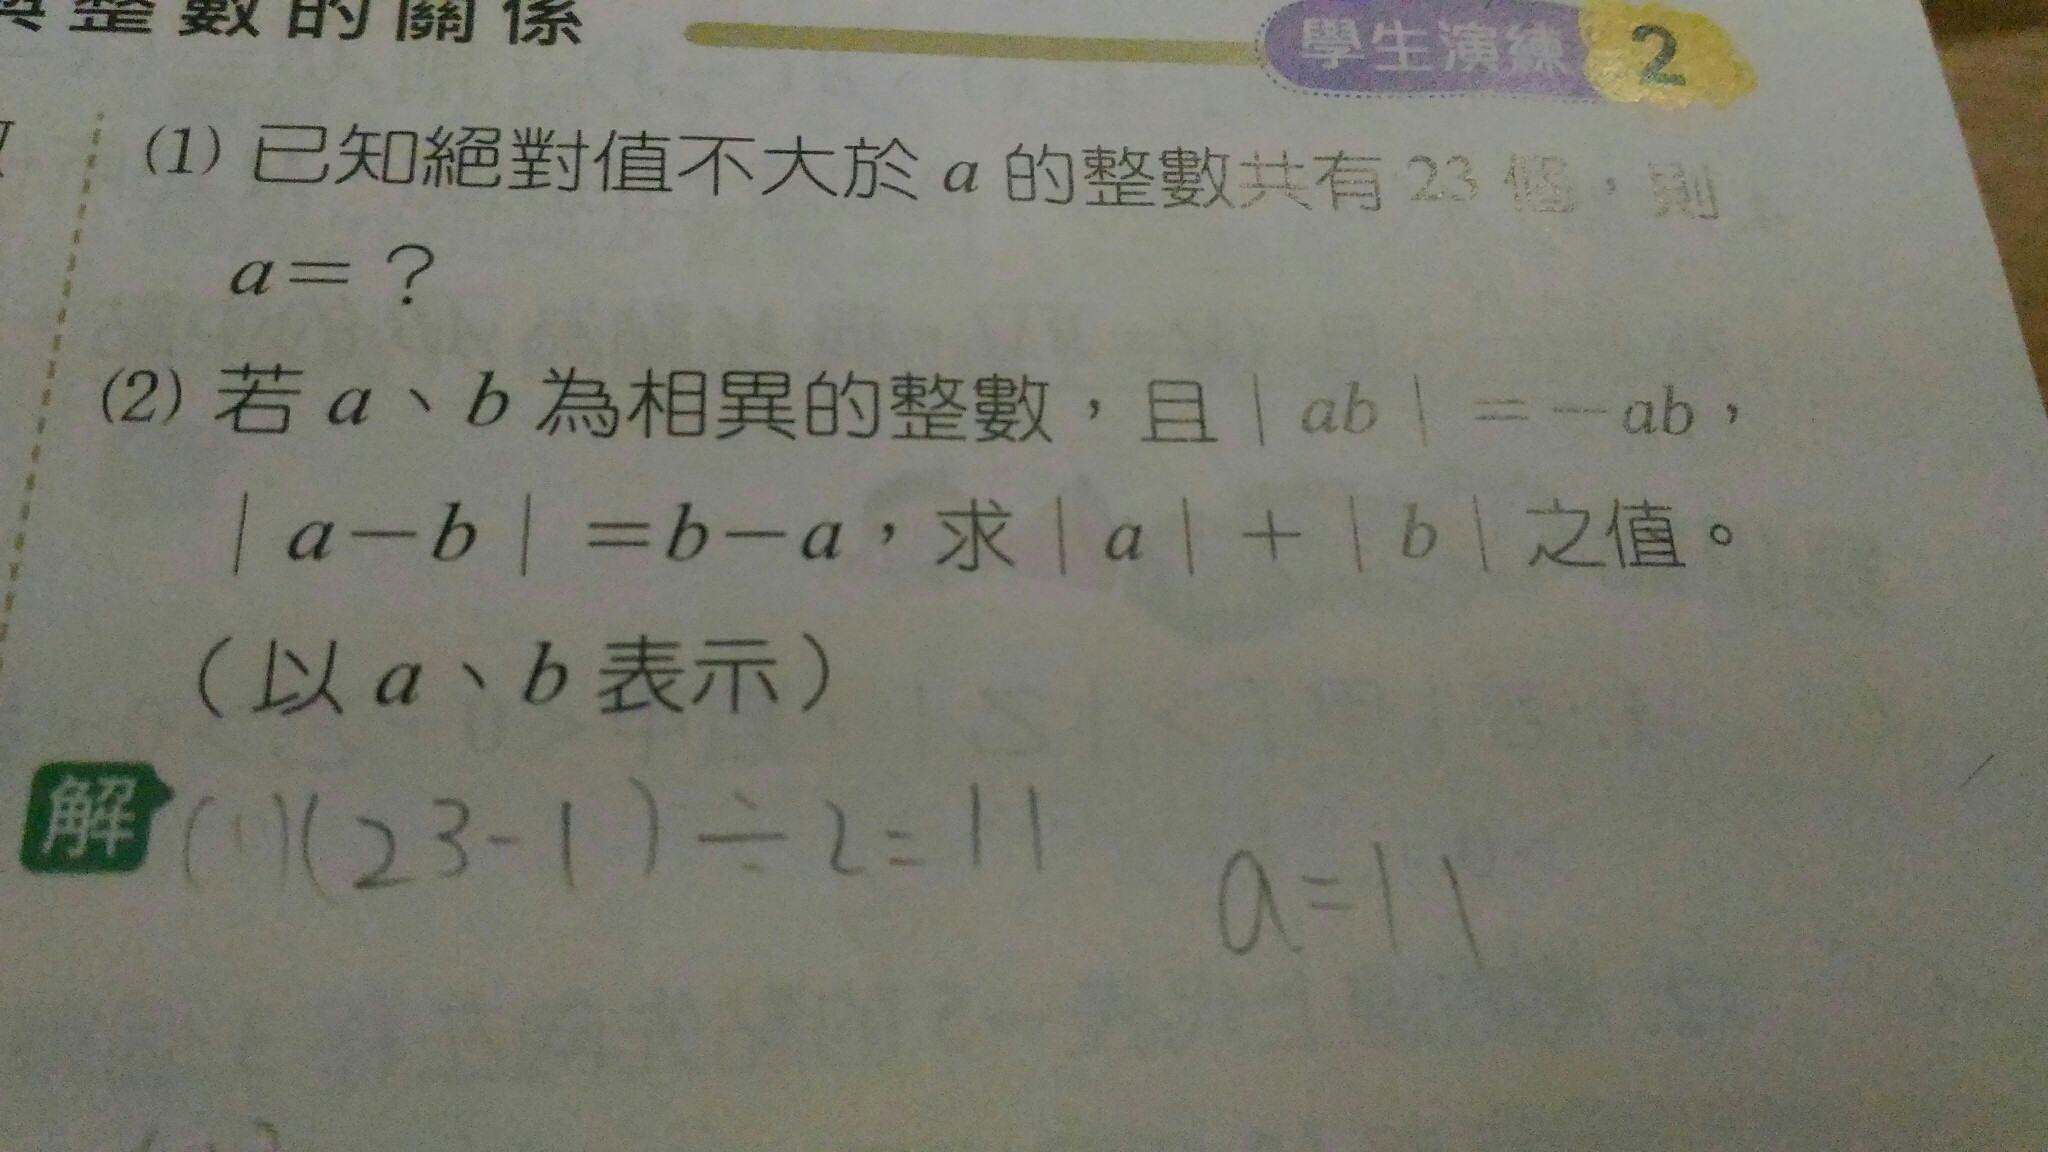 整數的關係
學生演練 2
(1) 已知絕對值不大於 a 的整數共有 23 個，則
a=？
(2) 若 a、b 為相異的整數，且|ab|=-ab，
|a-b|=b-a，求|a|+|b|之值。
（以 a、b 表示）
解 (1)(23-1)÷2=11
a=11